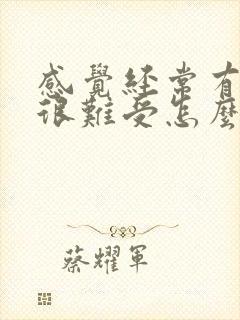 感覺經常有
很難受怎麼
蔡耀軍